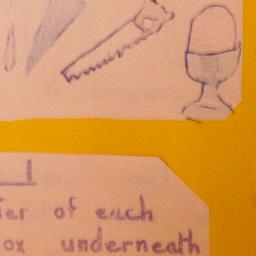 of each
underneath